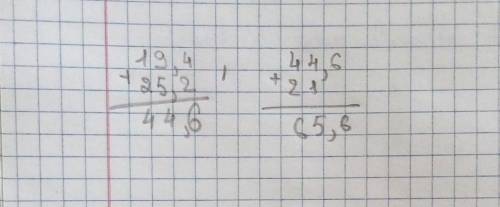 19,4 , 44,6
+ 25,2 + 21
44,6 65,6